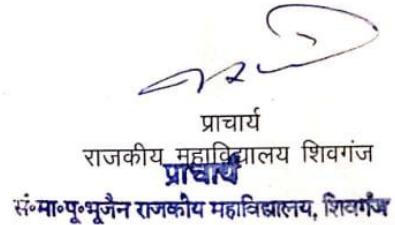 प्राचार्य
राजकीय महाविद्यालय शिवगंज
प्राचार्य
सं॰मा॰पू॰भूजैन राजकीय महाविद्यालय, शिवगंज